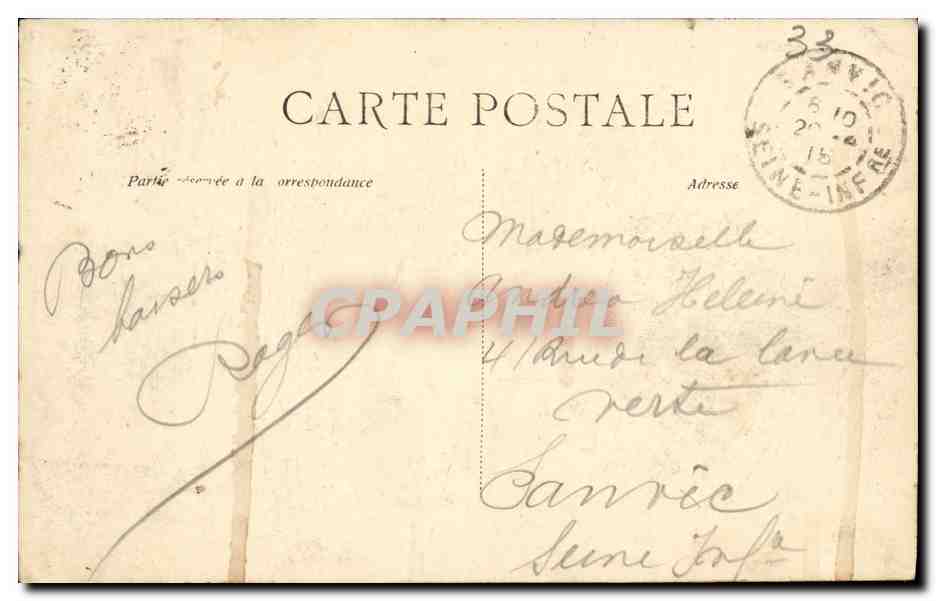 33
CARTE POSTALE
SANVIC
6 10
20
15
SEINE-INFRE
Partie réservée a la orrespondance
Adresse
Bons
baisers
Roger
Mademoiselle
Andrea Heleine
41 Rue de la Cavee
verte
Sanvic
Seine Infre
CPAPHIL